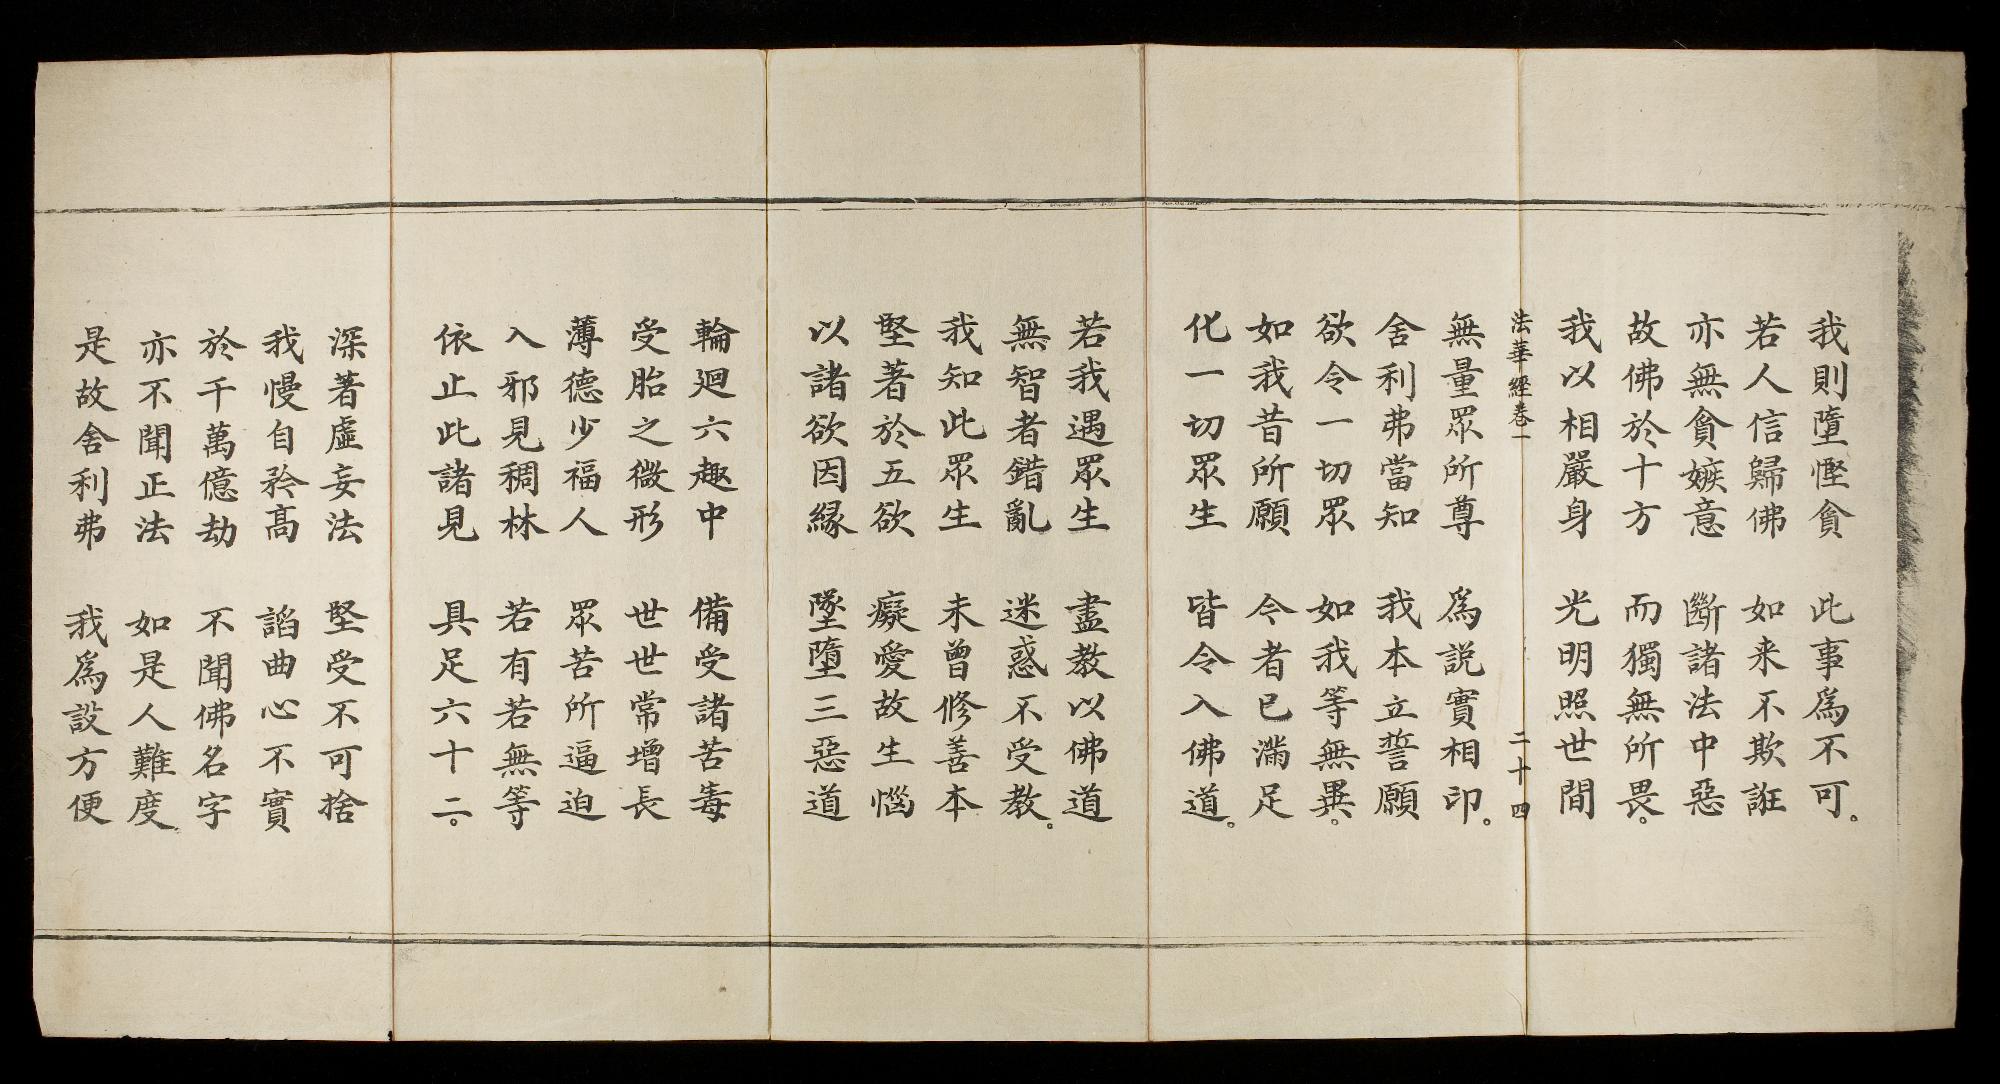 我則墮慳貪　此事爲不可。
若人信歸佛　如来不欺誑
亦無貪嫉意　斷諸法中惡
故佛於十方　而獨無所畏。
我以相嚴身　光明照世間
法華經卷一　二十四
無量眾所尊　爲説實相印。
舍利弗當知　我本立誓願
欲令一切眾　如我等無異。
如我昔所願　今者已滿足
化一切眾生　皆令入佛道。
若我遇眾生　盡教以佛道
無智者錯亂　迷惑不受教。
我知此眾生　未曾修善本
堅著於五欲　癡愛故生惱
以諸欲因緣　墜墮三惡道
輪廻六趣中　備受諸苦毒
受胎之微形　世世常增長
薄德少福人　眾苦所逼迫
入邪見稠林　若有若無等
依止此諸見　具足六十二。
深著虛妄法　堅受不可捨
我慢自矜高　諂曲心不實
於千萬億劫　不聞佛名字
亦不聞正法　如是人難度
是故舍利弗　我爲設方便